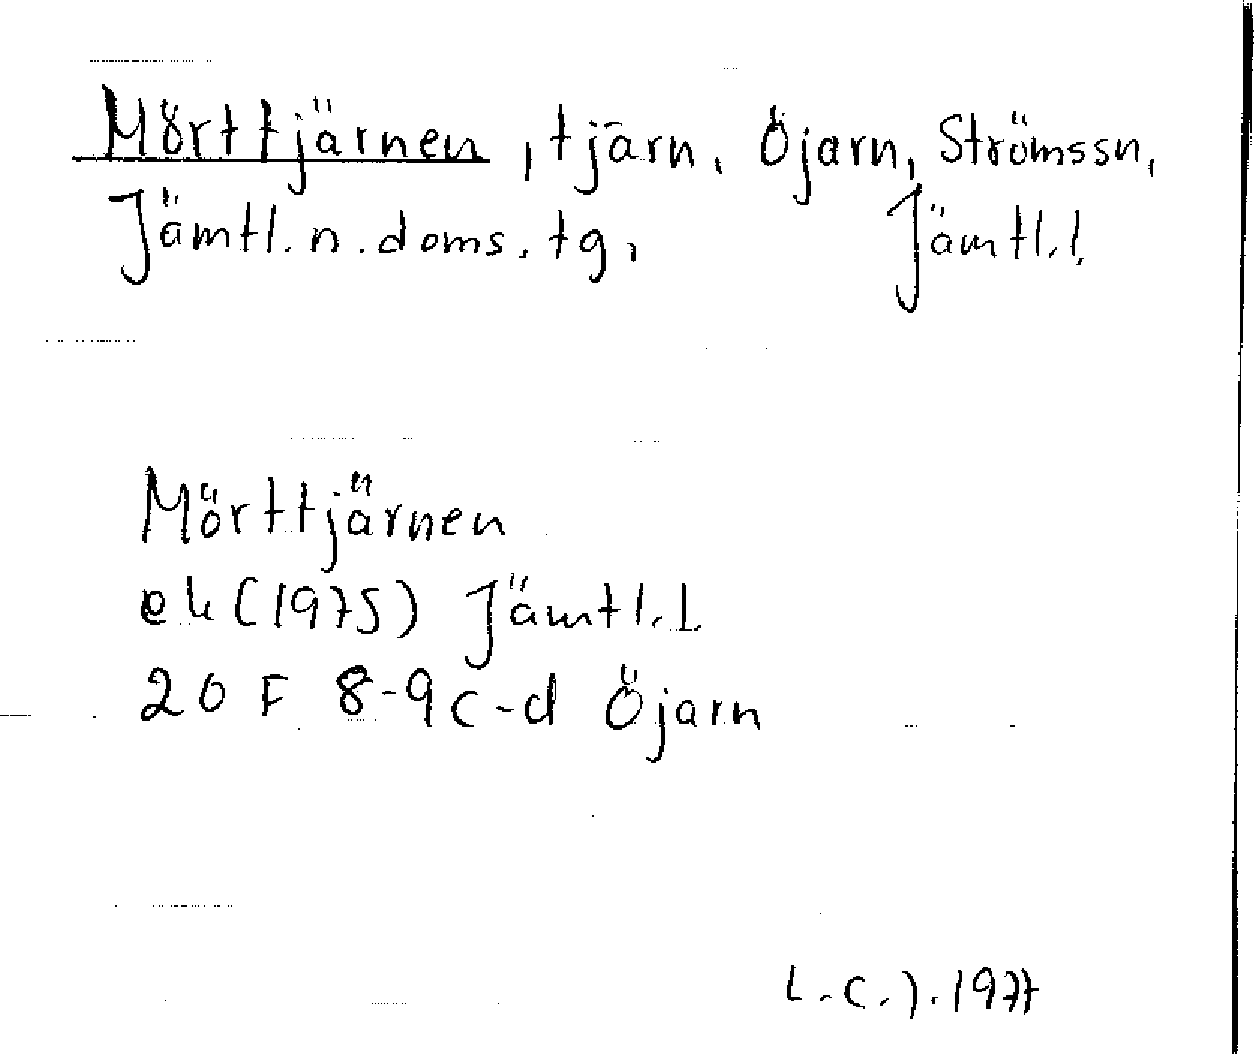 Mörttjärnen, tjärn, Öjarn, Strömssn,
Jämtl. n. doms. tg, Jämtl. l.
Mörttjärnen
ek (1975) Jämtl. l.
20 F 8-9 c-d Öjarn
L.C.J. 1977